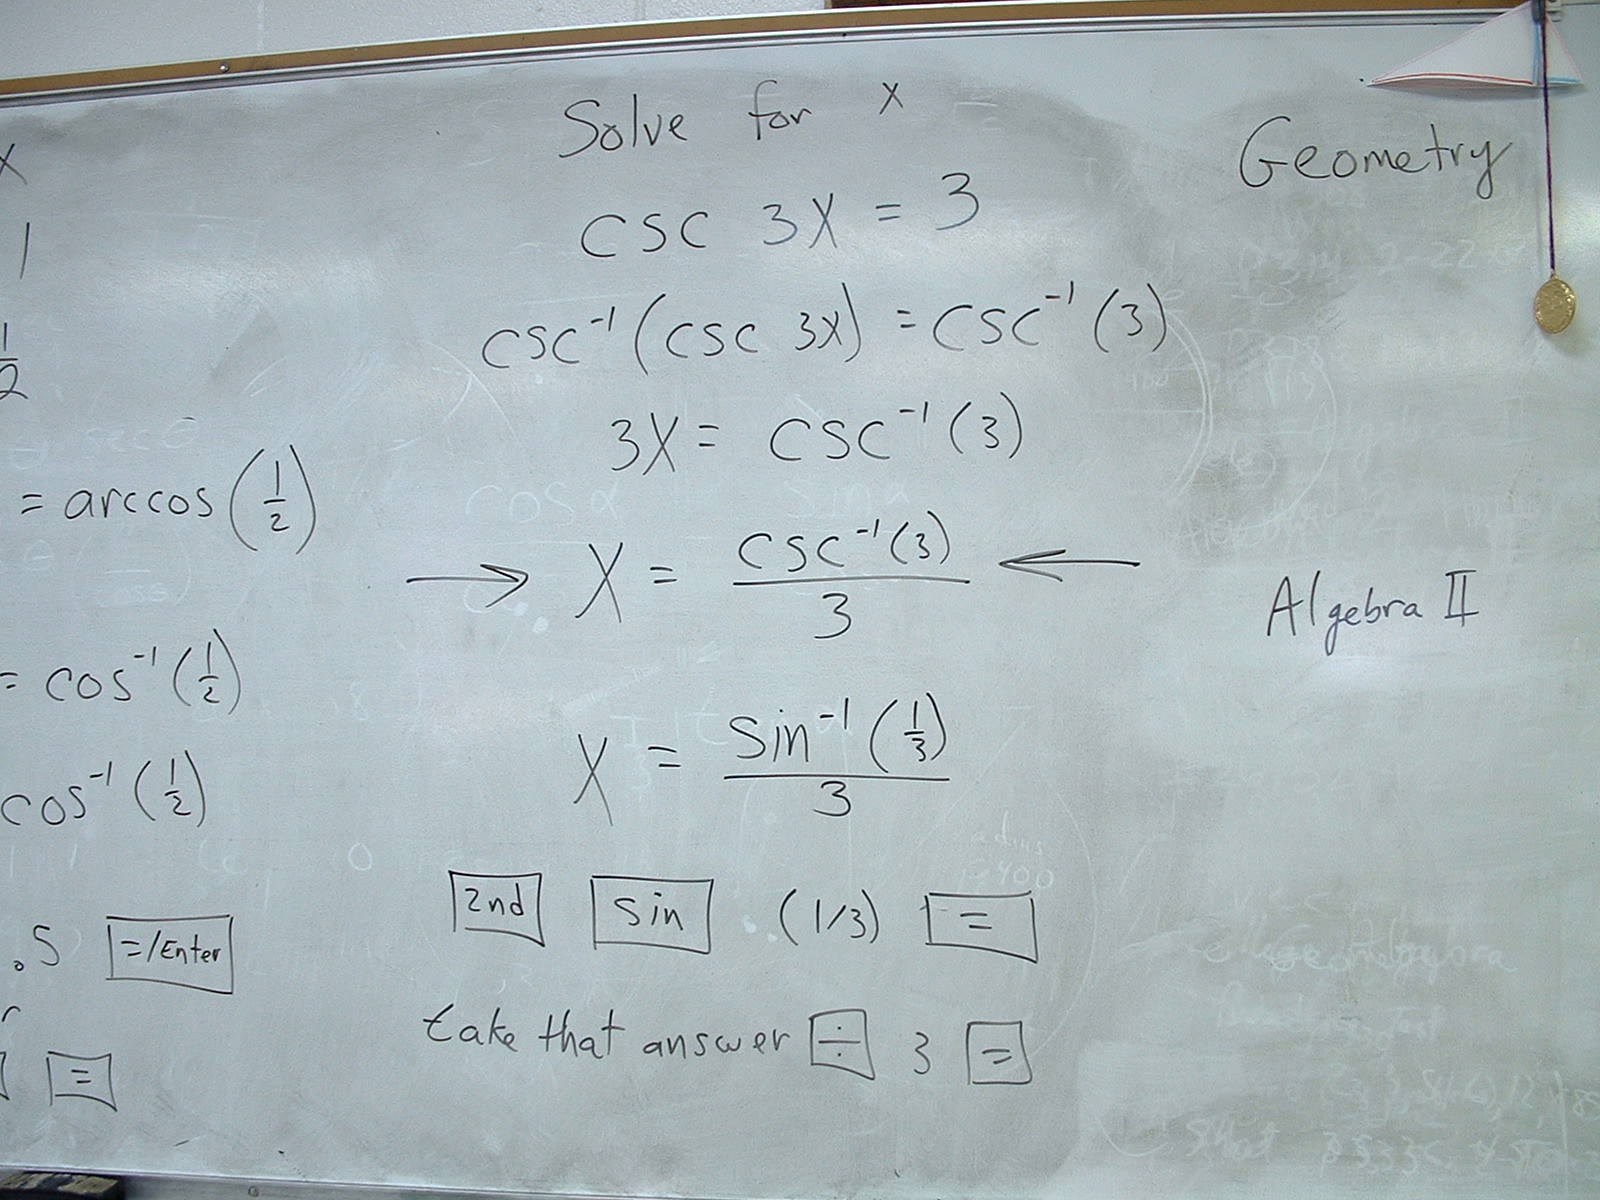 x
1
1/2
= arccos (1/2)
= cos⁻¹ (1/2)
cos⁻¹ (1/2)
.5 =/Enter
r
=
Solve for x
csc 3x = 3
csc⁻¹(csc 3x) = csc⁻¹(3)
3x = csc⁻¹(3)
→ x = csc⁻¹(3)/3 ←
x = sin⁻¹(1/3)/3
2nd sin (1/3) =
take that answer ÷ 3 =
Geometry
Algebra II